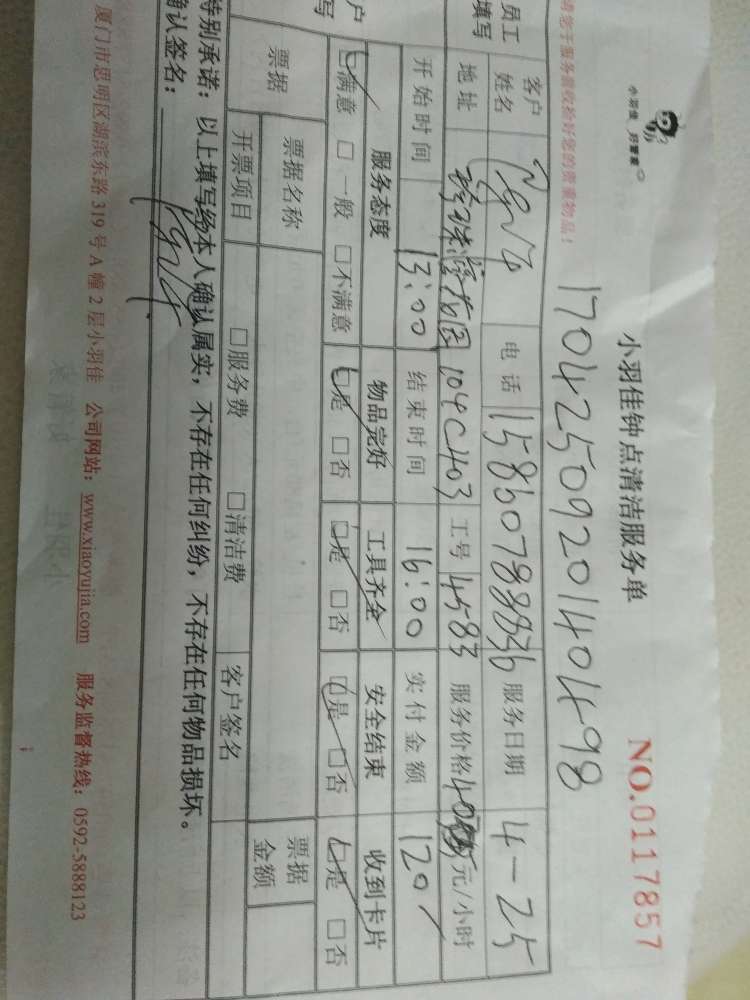 小羽佳 好管家
小羽佳钟点清洁服务单
NO.0117857
1704250920140498
服务验收检好您的贵重物品！
员工填写
客户姓名 电话 15860788836 服务日期 4-25
地址 104C403 工号 4583 服务价格 40 元/小时
开始时间 13:00 结束时间 16:00 实付金额 120
服务态度 物品完好 工具齐全 安全结束 收到卡片
☑满意 □一般 □不满意 ☑是 □否 ☑是 □否 ☑是 □否 ☑是 □否
票据 票据名称 票据金额
开票项目 □服务费 □清洁费 客户签名
特别承诺：以上填写经本人确认属实，不存在任何纠纷，不存在任何物品损坏。
确认签名：
厦门市思明区湖滨东路 319 号 A 幢 2 层小羽佳 公司网站：www.xiaoyujia.com 服务监督热线：0592-5888123